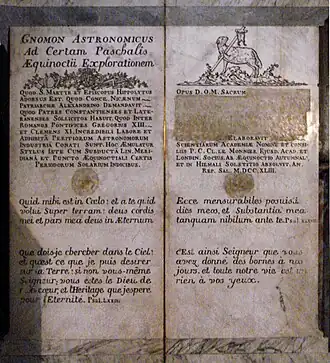 GNOMON ASTRONOMICUS
Ad Certam Paschalis
Æquinoctii Explorationem
QUOD S. MARTYR ET EPISCOPUS HIPPOLYTUS
ADORSUS EST. QUOD CONCIL. NICÆNUM
PATRIARCHÆ ALEXANDRINO DEMANDAVIT
QUOD PATRES CONSTANTIENSES ET LATE-
RANENSES SOLLICITOS HABUIT. QUOD INTER
ROMANOS PONTIFICES GREGORIUS XIII.
ET CLEMENS XI. INCREDIBILI LABORE ET
ADHIBITA PERITIORUM ASTRONOMORUM
INDUSTRIA CONATI SUNT. HOC ÆMULATUR
STYLUS ISTE CUM SUBDUCTA LIN. MERI-
DIANA ET PUNCTO ÆQUINOCTIALI CERTIS
PERIODORUM SOLARIUM INDICIBUS.
Quid mihi est in Cœlo: et a te quid
volui Super terram: deus cordis
mei et pars mea deus in Æternum
Que dois-je chercher dans le Ciel:
et qu'est ce que je puis desirer
sur la Terre: si non vous-même
Seigneur, vous estes le Dieu de
cœur, et l'Heritage que j'espere
pour l'Eternité. Psal.
OPUS D.O.M. SACRUM
ELABORAVIT
SCIENTIARUM ACADEMIÆ NOMINE ET CONSI-
LIO P. C. CL. LE MONNIER EJUSD. ACAD. ET
LONDIN. SOCIUS AB ÆQUINOCTIO AUTUMNAL.
ET IN HIEMALI SOLSTITIO ABSOLVIT. AN.
REP. SAL. M.DCC.XLIII.
Ecce mensurabiles posuisti
dies meos, et Substantia mea
tanquam nihilum ante te. Psal.
C'Est ainsi Seigneur que vous
avez donné des bornes à nos
jours. et toute notre vie est un
rien à vos yeux.